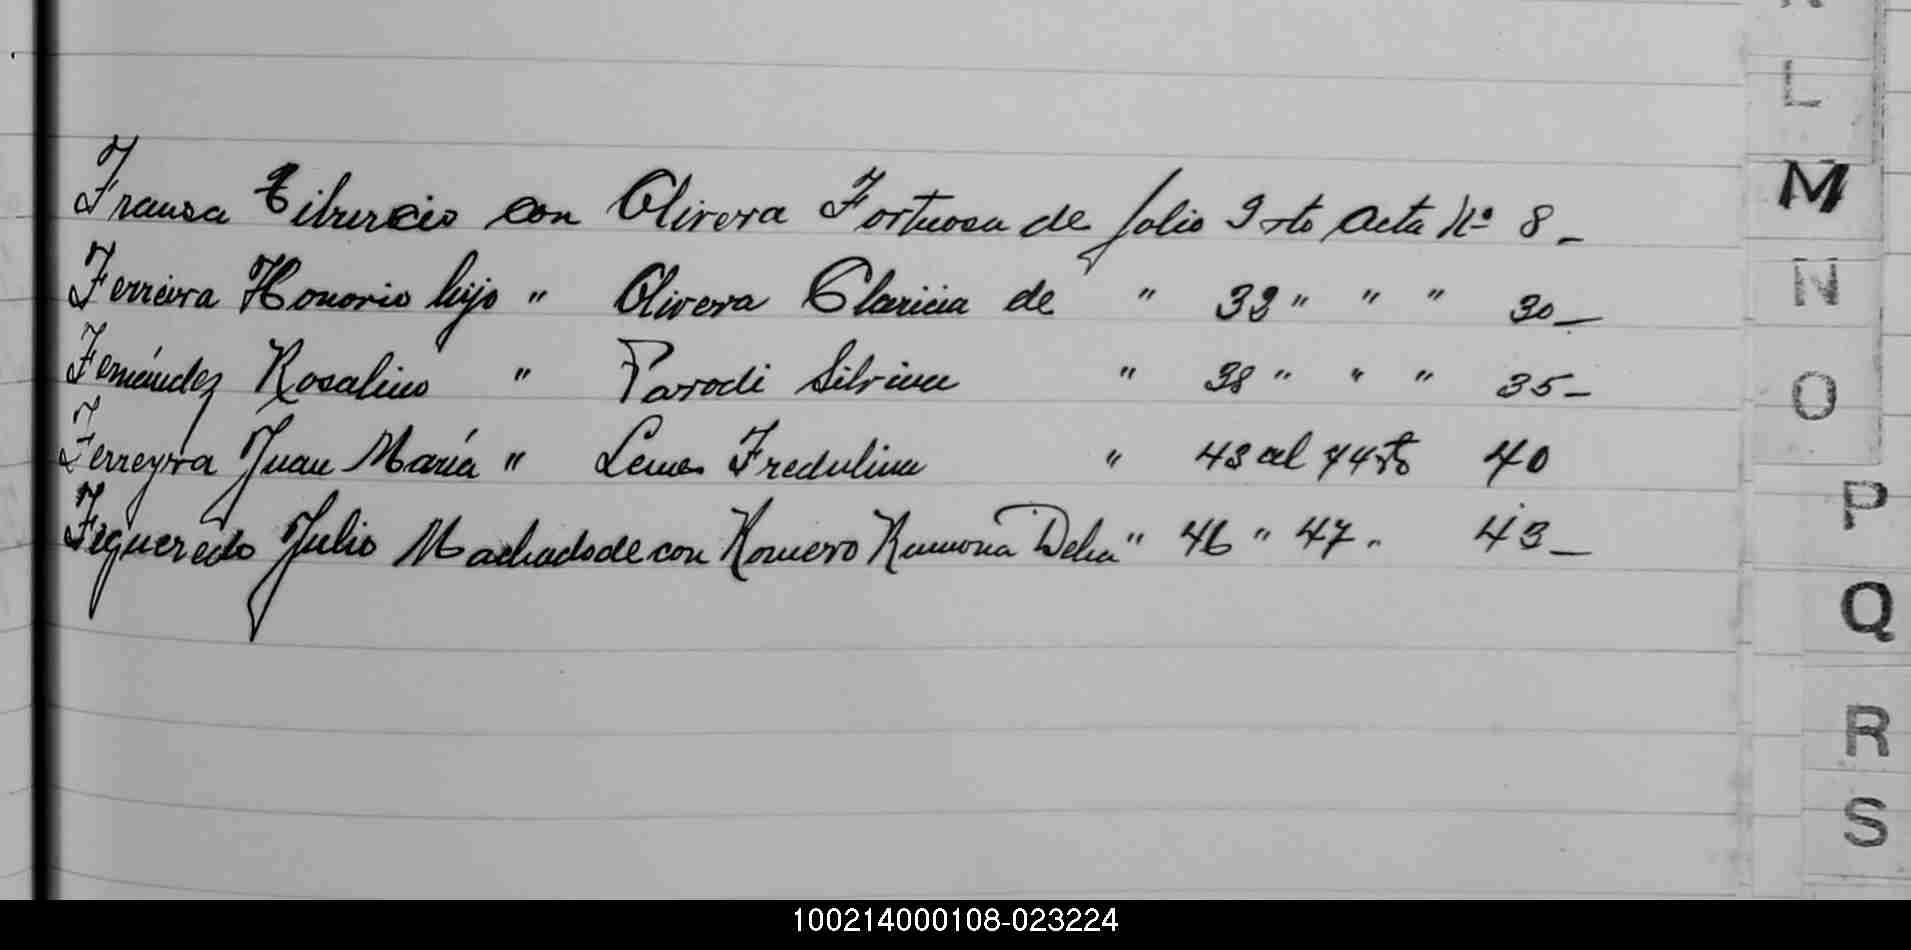 Fransa Tiburcio con Olivera Fortuosa de folio 9 vto acta Nº 8_
Ferreira Honorio hijo " Olivera Claricia de " 33 " " " 30_
Fernández Rosalino " Parodi Silvina " 38 " " " 35_
Ferreyra Juan María " Lemes Fredulina " 43 al 44 vto 40
Figueredo Julio Machado de con Romero Ramona Delia " 46 " 47 " 43_
L
M
N
O
P
Q
R
S
100214000108-023224